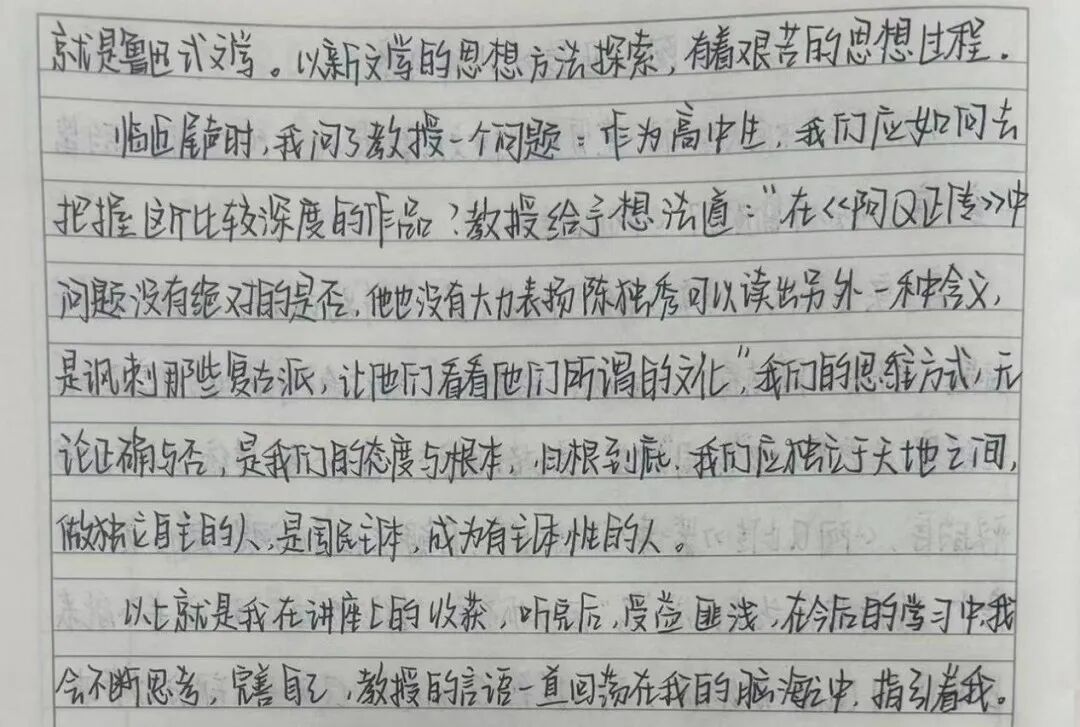 就是鲁迅式文学。以新文学的思想方法探索，有着艰苦的思想过程．
临近尾声时，我问了教授一个问题：作为高中生，我们应如何去
把握这个比较深度的作品？教授给予想法道：“在《阿Q正传》中
问题没有绝对的是否，他也没有大力表扬陈独秀可以读出另外一种含义，
是讽刺那些复古派，让他们看看他们所谓的文化”，我们的思维方式，无
论正确与否，是我们的态度与根本，归根到底，我们应独立于天地之间，
做独立自主的人，是国民主体，成为有主体性的人。
以上就是我在讲座上的收获，听完后，受益匪浅，在今后的学习中，我
会不断思考，完善自己，教授的言语一直回荡在我的脑海之中，指引着我。